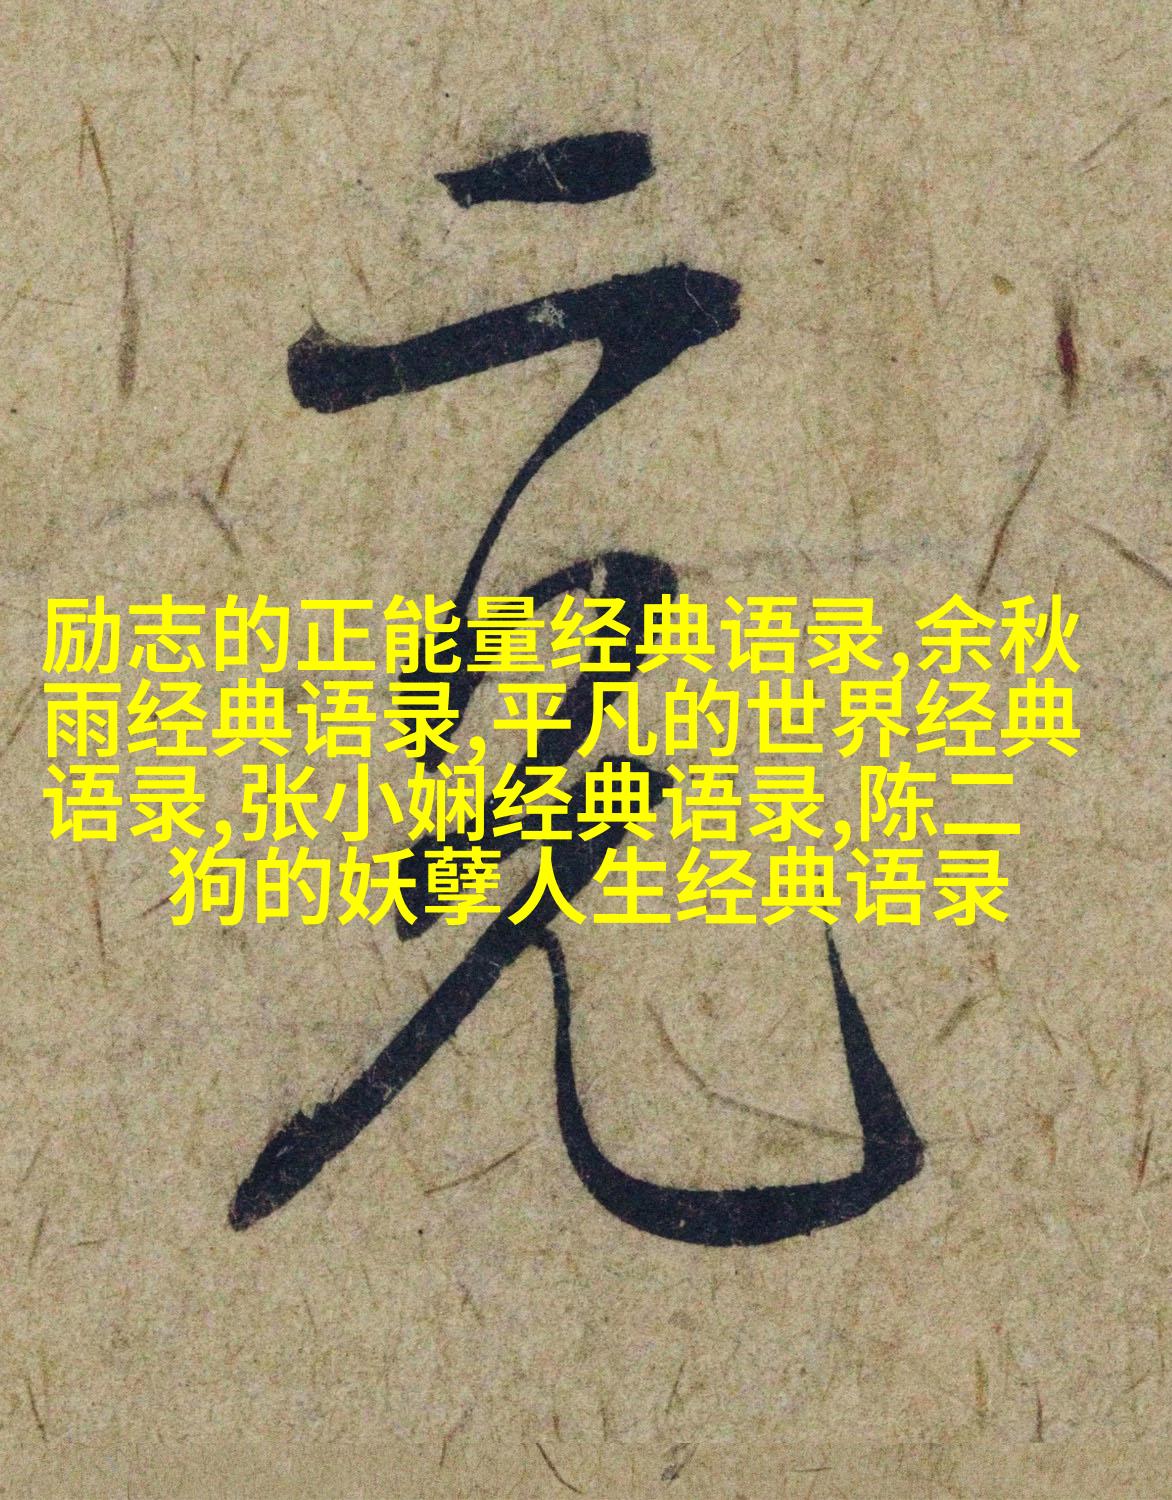 励志的正能量经典语录,余秋
雨经典语录,平凡的世界经典
语录,张小娴经典语录,陈二
狗的妖孽人生经典语录